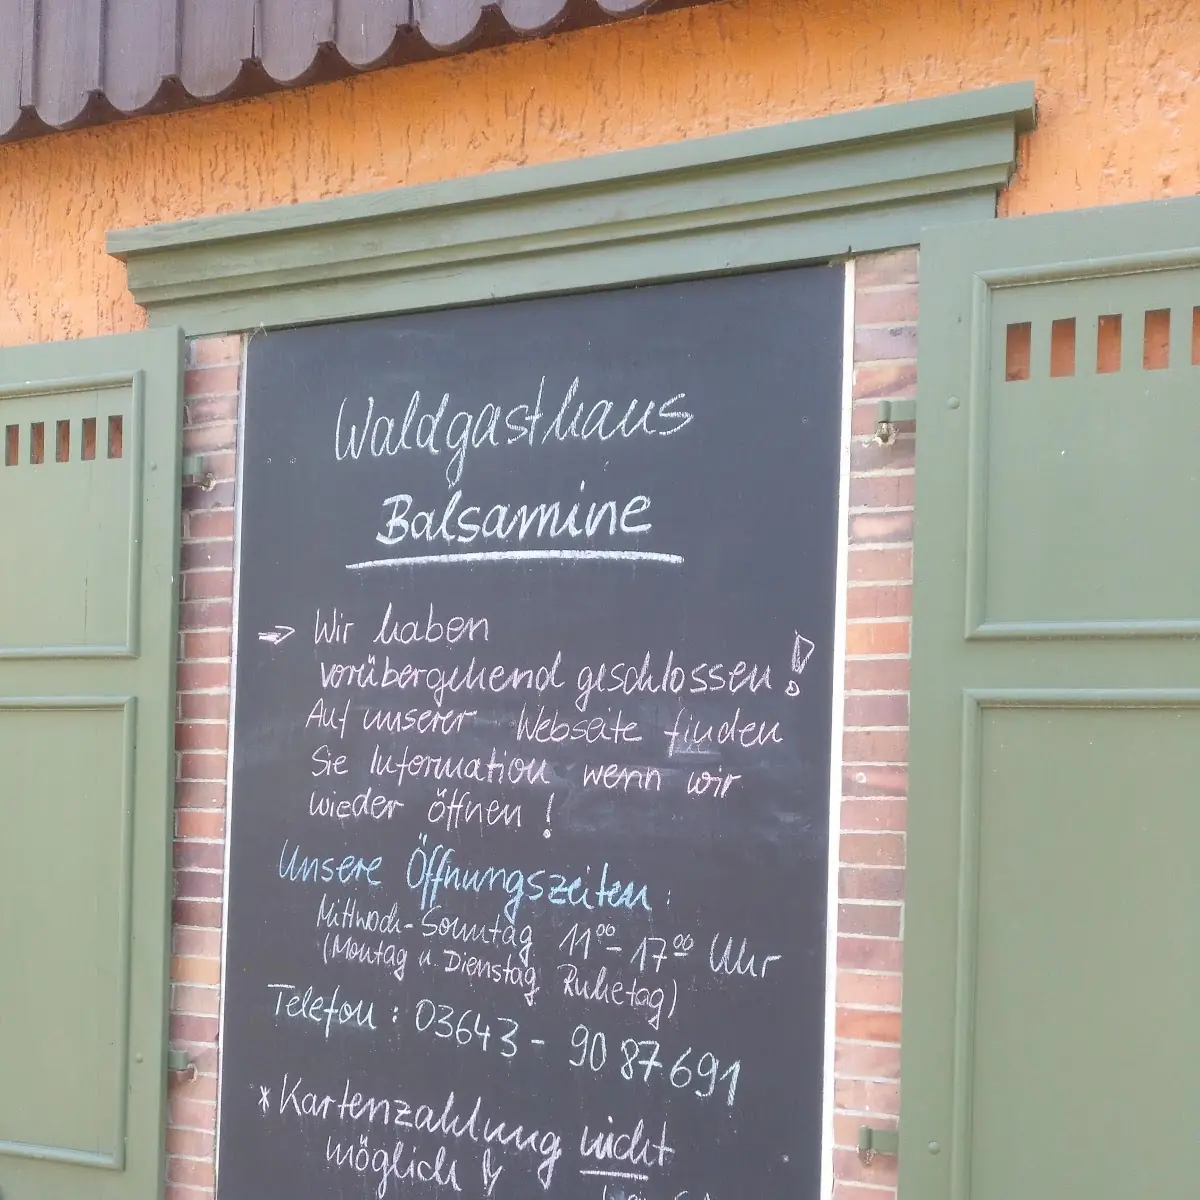 Waldgasthaus
Balsamine
⇒ Wir haben
vorübergehend geschlossen!
Auf unserer Webseite finden
Sie Information wenn wir
wieder öffnen!
Unsere Öffnungszeiten:
Mittwoch-Sonntag 11⁰⁰-17⁰⁰ Uhr
(Montag u. Dienstag Ruhetag)
Telefon: 03643 - 9087691
*Kartenzahlung nicht
möglich